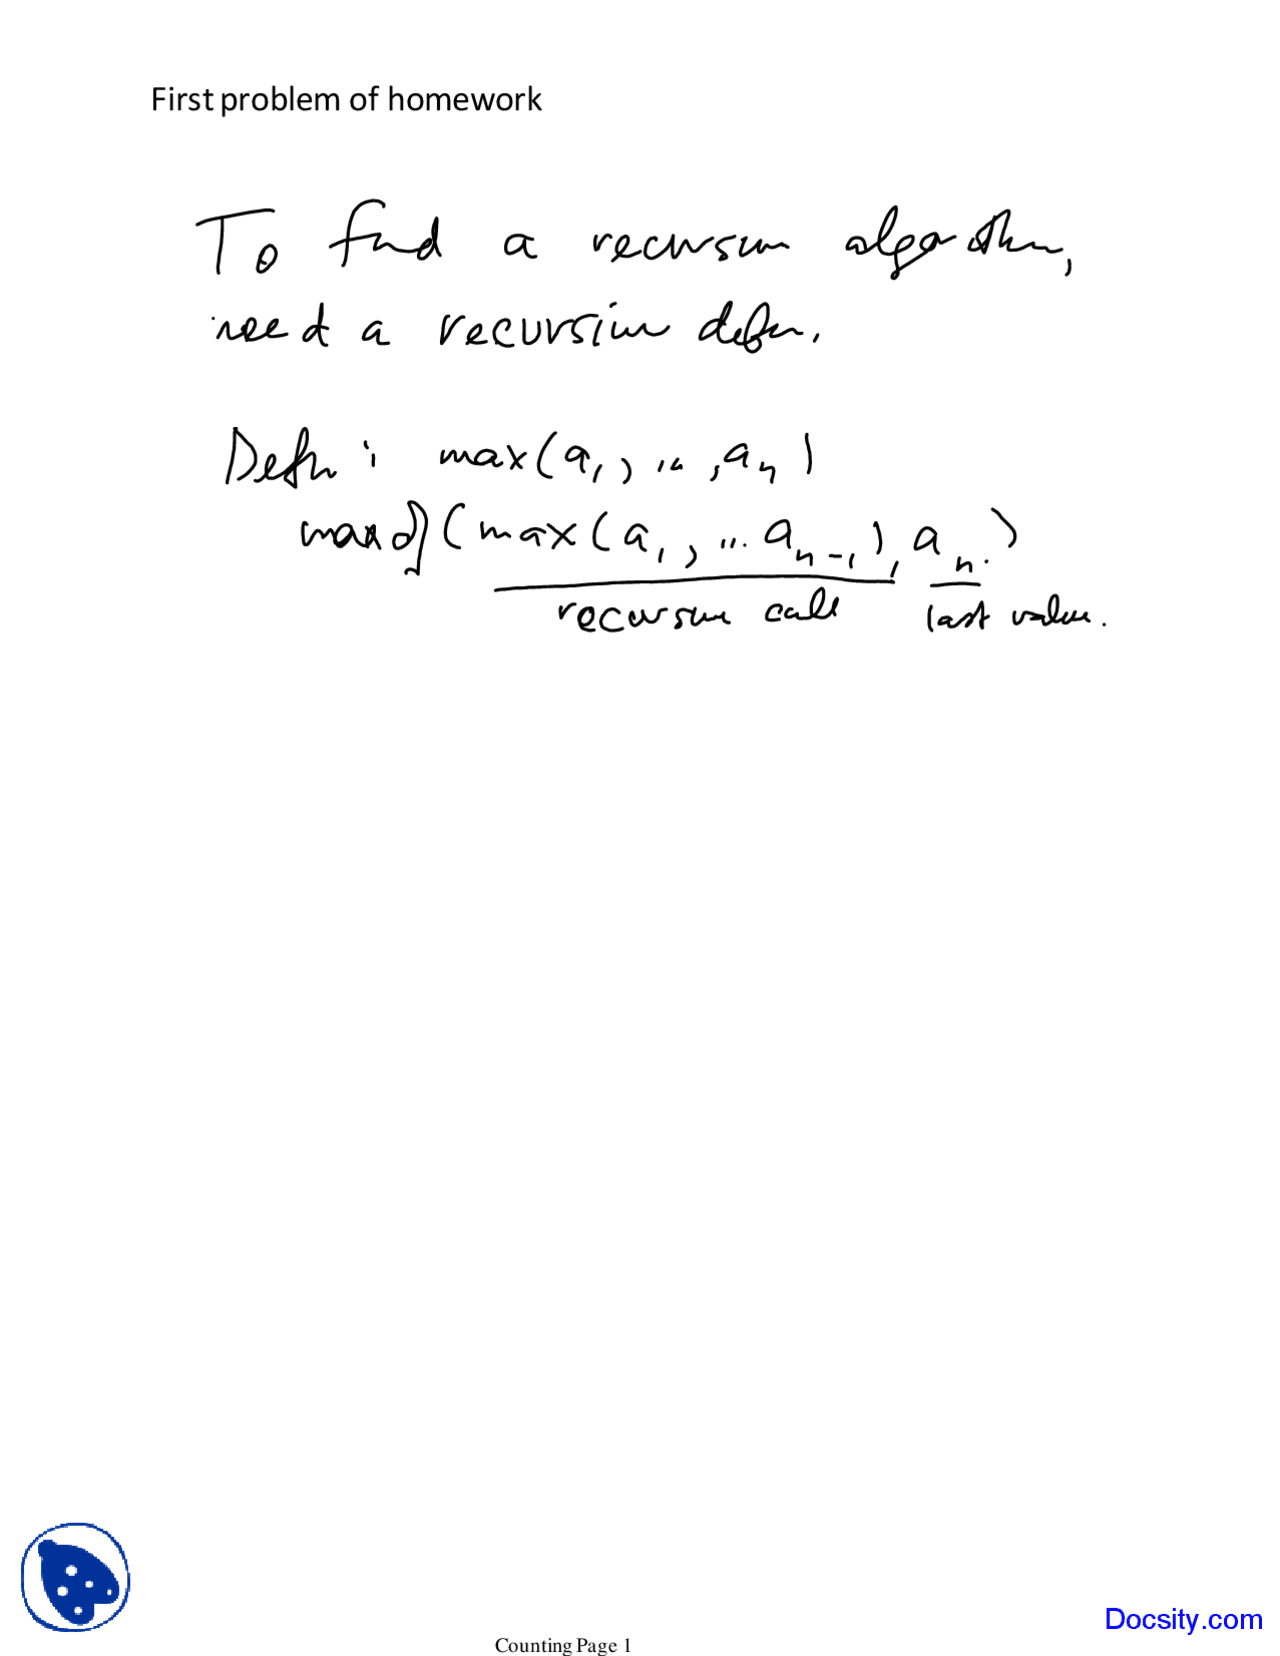 First problem of homework
To find a recursive algorithm,
need a recursive defn.
Defn: max(a₁, ..., aₙ)
max of (max(a₁, ... aₙ₋₁), aₙ.)
recursive call last value.
Docsity.com
Counting Page 1